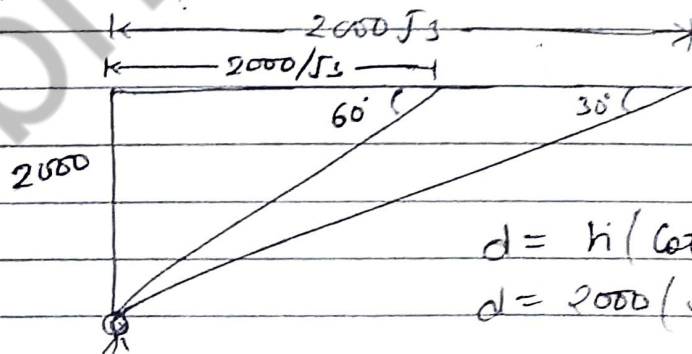 2000√3
2000/√3
60°
30°
2000
d = h(
d = 2000(